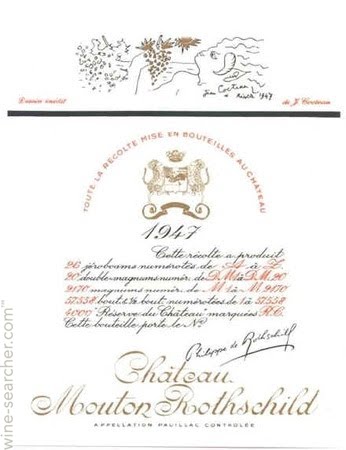 Jean Cocteau
1947
Dessin inédit
de J. Cocteau
TOUTE LA RÉCOLTE MISE EN BOUTEILLES AU CHÂTEAU
1947
Cette récolte a produit
26 jéroboams numérotés de A à Z
90 double-magnums numér. de D.M.1 à D.M.90
9170 magnums numér. de M 1 à M 9170
57.558 bout. & ½ bout. numérotées de 1 à 57558
4000 "Réserve du Château" marquées R.C.
Cette bouteille porte le No
Philippe de Rothschild
Château
Mouton Rothschild
APPELLATION PAUILLAC CONTROLÉE
wine-searcher.com